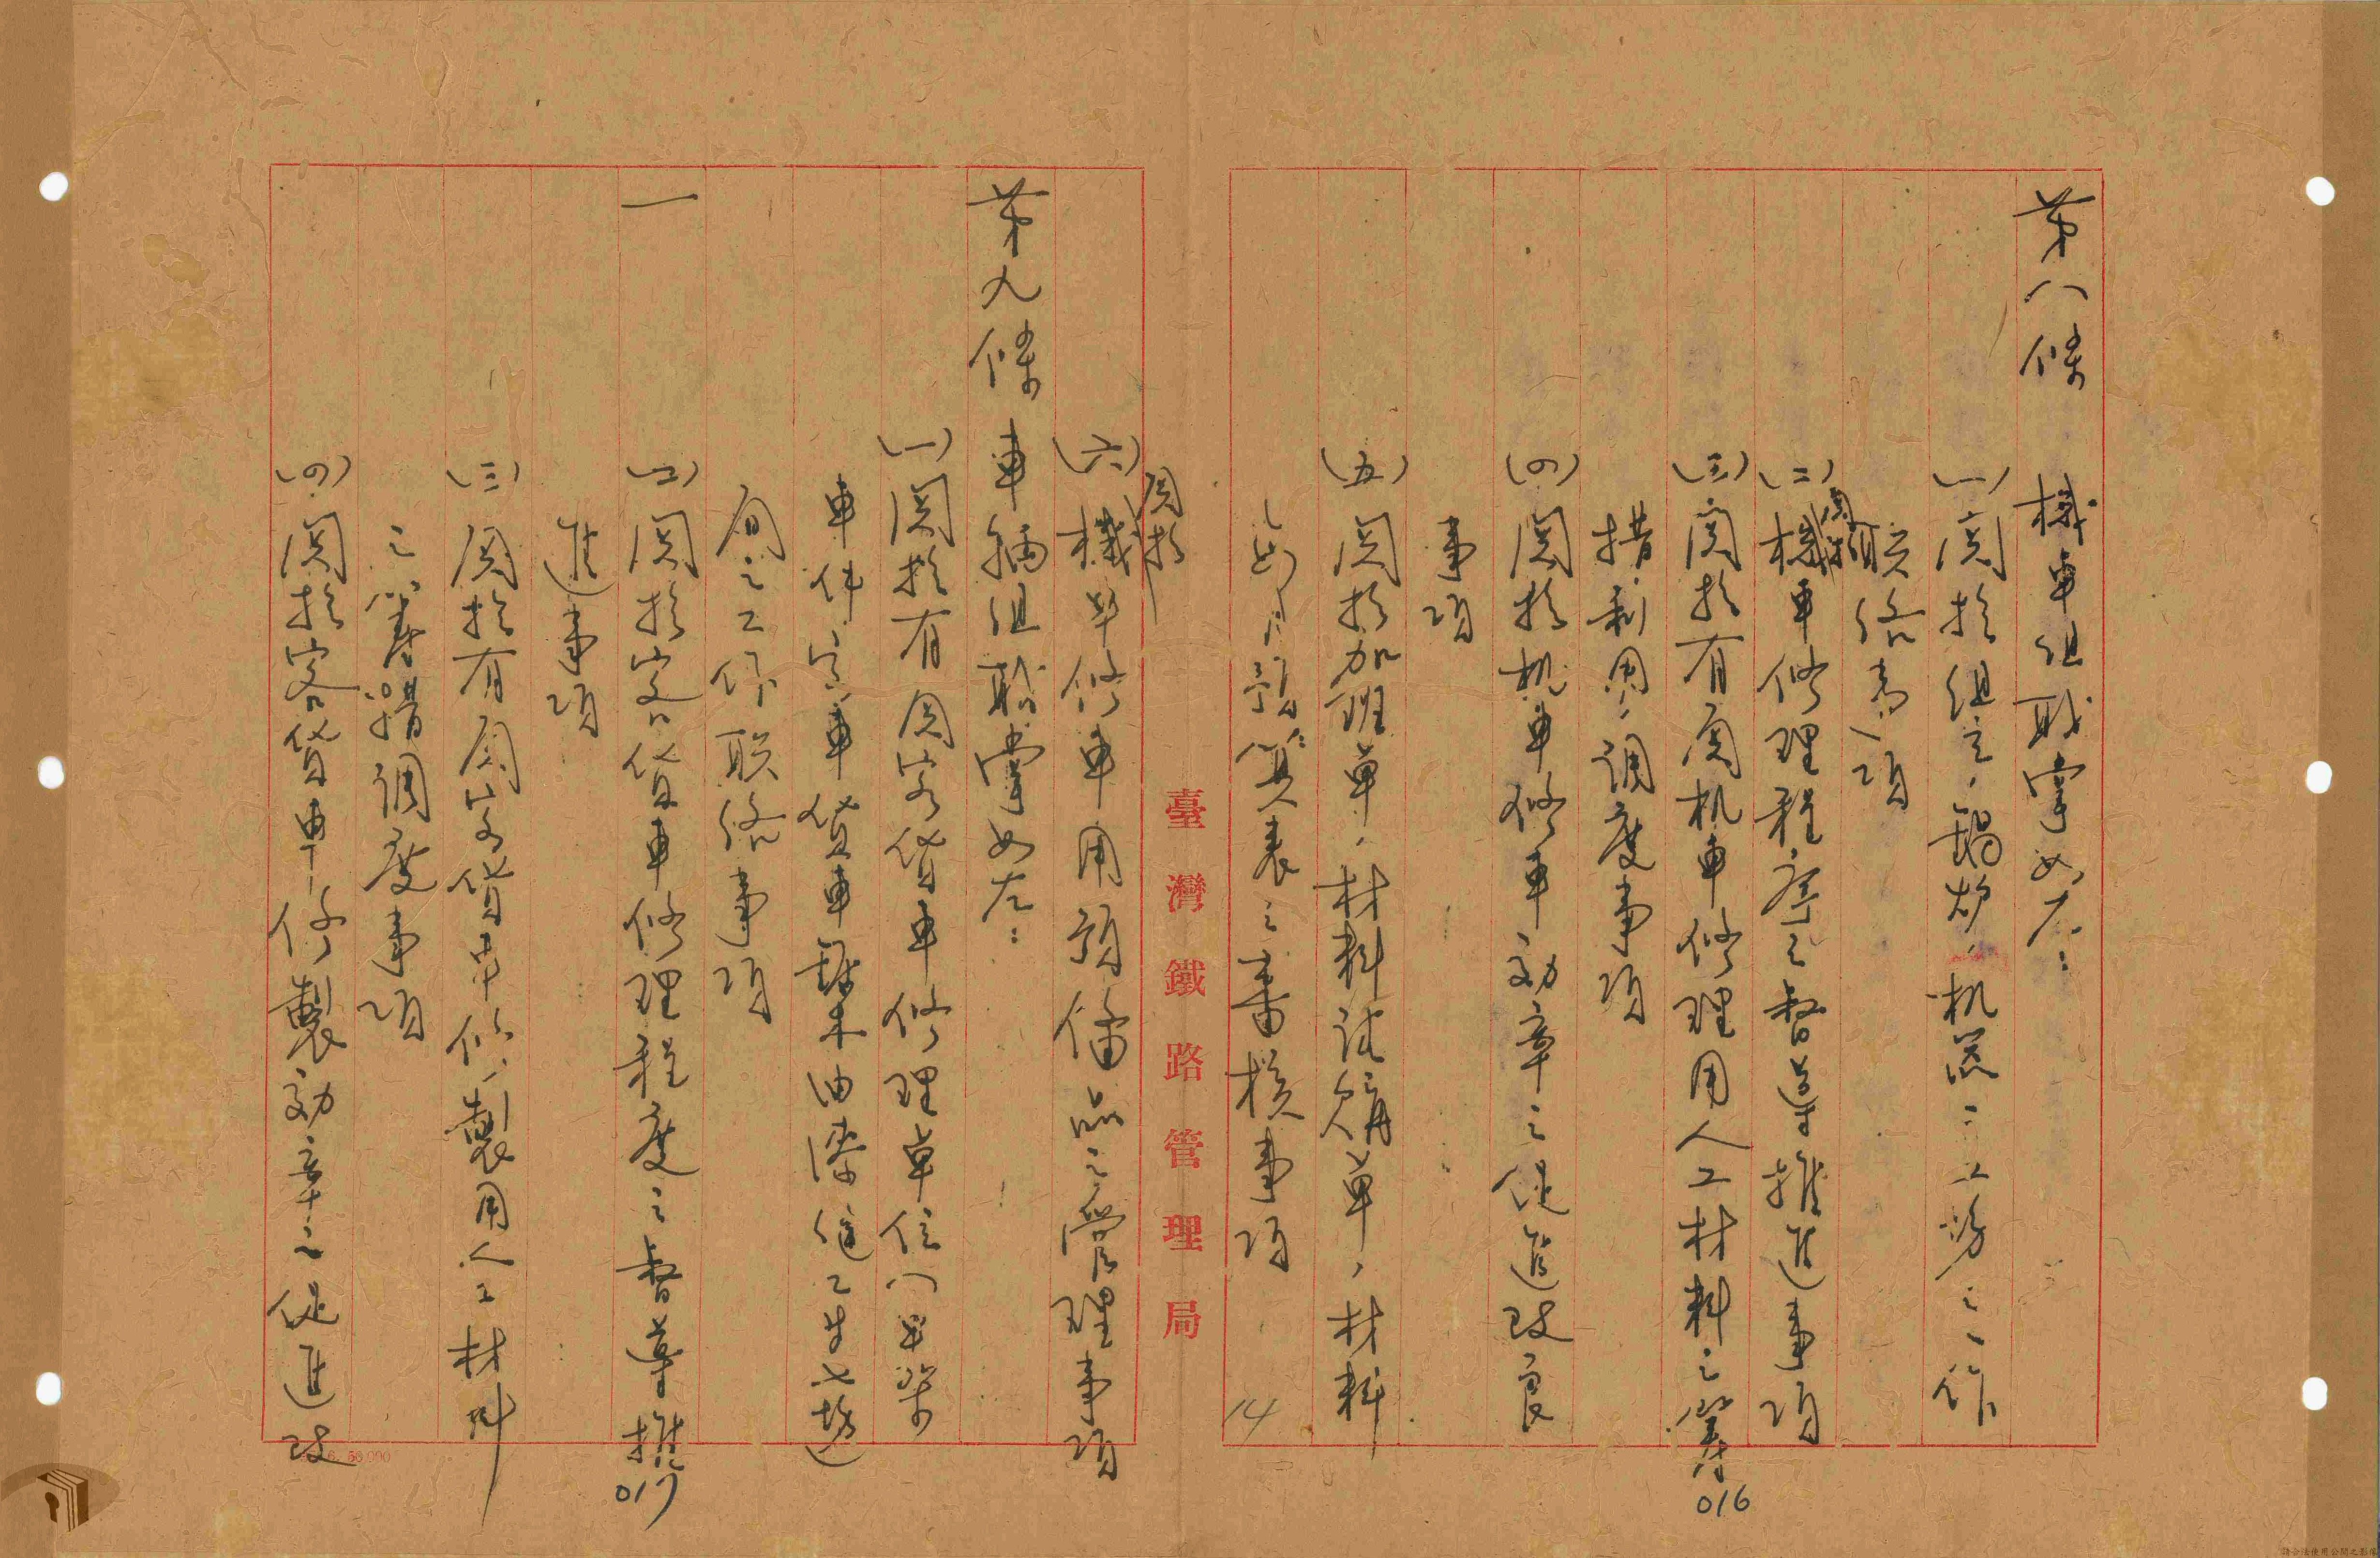 第八條 機車組职掌如左：
(一)関於組立、鍋炉、机器三工場之工作
联络事項
(二)関於機車修理程序之督導推進事項
(三)関於有関机車修理用人工材料之籌
措利用、調度事項
(四)関於机車修車効率之促進改良
事項
(五)関於加班單、材料請購單、材料
預算表之審核事項
14
016
臺灣鐵路管理局
(六)関於機車修車用預備品之管理事項
第九條 車輛組职掌如左：
(一)関於有関客貨車修理單位
車件客車貨車
間之工作联络事項
(二)関於客貨車修理程度之督導推
進事項
(三)関於有関客貨車修製用人工材料
之籌措調度事項
(四)関於客貨車修製効率之促進改
017
50,000